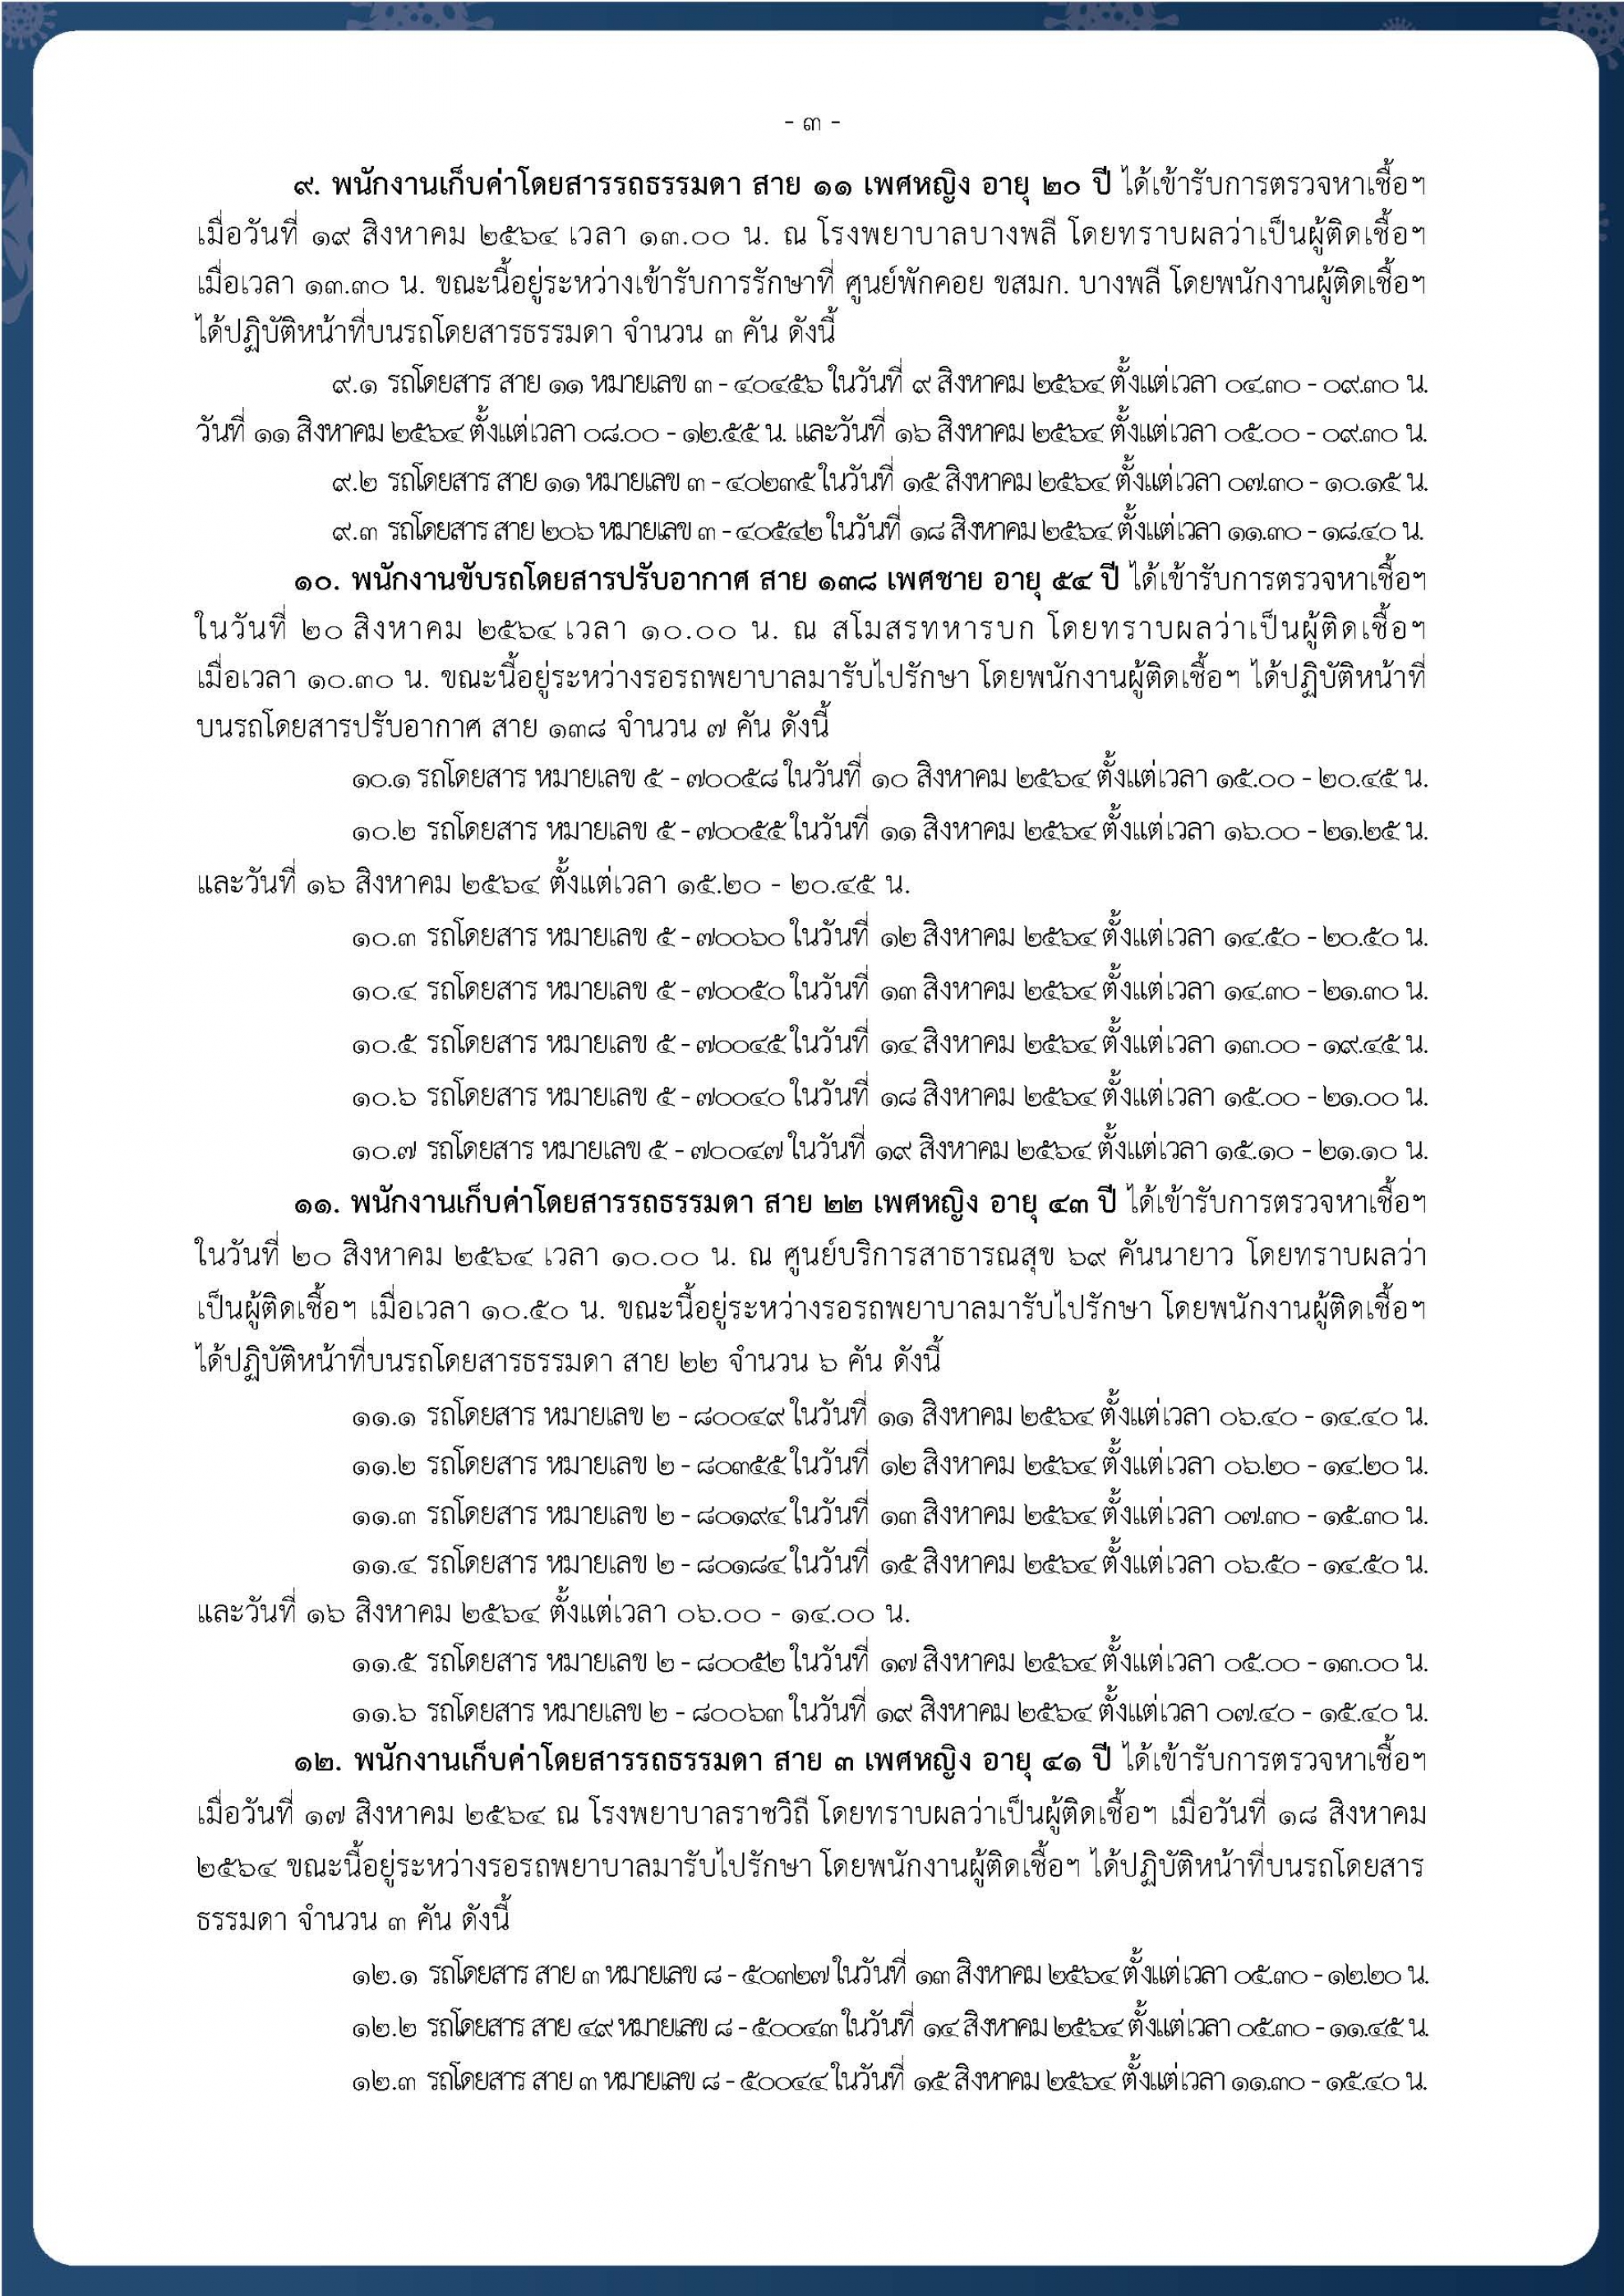 - ๓ -
๙. พนักงานเก็บค่าโดยสารรถธรรมดา สาย ๑๑ เพศหญิง อายุ ๒๐ ปี ได้เข้ารับการตรวจหาเชื้อฯ
เมื่อวันที่ ๑๙ สิงหาคม ๒๕๖๔ เวลา ๑๓.๐๐ น. ณ โรงพยาบาลบางพลี โดยทราบผลว่าเป็นผู้ติดเชื้อฯ
เมื่อเวลา ๑๓.๓๐ น. ขณะนี้อยู่ระหว่างเข้ารับการรักษาที่ ศูนย์พักคอย ขสมก. บางพลี โดยพนักงานผู้ติดเชื้อฯ
ได้ปฏิบัติหน้าที่บนรถโดยสารธรรมดา จำนวน ๓ คัน ดังนี้
๙.๑ รถโดยสาร สาย ๑๑ หมายเลข ๓ - ๔๐๔๕๖ ในวันที่ ๙ สิงหาคม ๒๕๖๔ ตั้งแต่เวลา ๐๔.๓๐ - ๐๙.๓๐ น.
วันที่ ๑๑ สิงหาคม ๒๕๖๔ ตั้งแต่เวลา ๐๘.๐๐ - ๑๒.๕๕ น. และวันที่ ๑๖ สิงหาคม ๒๕๖๔ ตั้งแต่เวลา ๐๕.๐๐ - ๐๙.๓๐ น.
๙.๒ รถโดยสาร สาย ๑๑ หมายเลข ๓ - ๔๐๒๓๕ ในวันที่ ๑๕ สิงหาคม ๒๕๖๔ ตั้งแต่เวลา ๐๗.๓๐ - ๑๐.๑๕ น.
๙.๓ รถโดยสาร สาย ๒๐๖ หมายเลข ๓ - ๔๐๕๔๒ ในวันที่ ๑๘ สิงหาคม ๒๕๖๔ ตั้งแต่เวลา ๑๑.๓๐ - ๑๘.๔๐ น.
๑๐. พนักงานขับรถโดยสารปรับอากาศ สาย ๑๓๘ เพศชาย อายุ ๕๔ ปี ได้เข้ารับการตรวจหาเชื้อฯ
ในวันที่ ๒๐ สิงหาคม ๒๕๖๔ เวลา ๑๐.๐๐ น. ณ สโมสรทหารบก โดยทราบผลว่าเป็นผู้ติดเชื้อฯ
เมื่อเวลา ๑๐.๓๐ น. ขณะนี้อยู่ระหว่างรอรถพยาบาลมารับไปรักษา โดยพนักงานผู้ติดเชื้อฯ ได้ปฏิบัติหน้าที่
บนรถโดยสารปรับอากาศ สาย ๑๓๘ จำนวน ๗ คัน ดังนี้
๑๐.๑ รถโดยสาร หมายเลข ๕ - ๗๐๐๕๘ ในวันที่ ๑๐ สิงหาคม ๒๕๖๔ ตั้งแต่เวลา ๑๕.๐๐ - ๒๐.๔๕ น.
๑๐.๒ รถโดยสาร หมายเลข ๕ - ๗๐๐๕๕ ในวันที่ ๑๑ สิงหาคม ๒๕๖๔ ตั้งแต่เวลา ๑๖.๐๐ - ๒๑.๒๕ น.
และวันที่ ๑๖ สิงหาคม ๒๕๖๔ ตั้งแต่เวลา ๑๕.๒๐ - ๒๐.๔๕ น.
๑๐.๓ รถโดยสาร หมายเลข ๕ - ๗๐๐๖๐ ในวันที่ ๑๒ สิงหาคม ๒๕๖๔ ตั้งแต่เวลา ๑๔.๕๐ - ๒๐.๕๐ น.
๑๐.๔ รถโดยสาร หมายเลข ๕ - ๗๐๐๕๐ ในวันที่ ๑๓ สิงหาคม ๒๕๖๔ ตั้งแต่เวลา ๑๔.๓๐ - ๒๑.๓๐ น.
๑๐.๕ รถโดยสาร หมายเลข ๕ - ๗๐๐๔๕ ในวันที่ ๑๔ สิงหาคม ๒๕๖๔ ตั้งแต่เวลา ๑๓.๐๐ - ๑๙.๔๕ น.
๑๐.๖ รถโดยสาร หมายเลข ๕ - ๗๐๐๔๐ ในวันที่ ๑๘ สิงหาคม ๒๕๖๔ ตั้งแต่เวลา ๑๕.๐๐ - ๒๑.๐๐ น.
๑๐.๗ รถโดยสาร หมายเลข ๕ - ๗๐๐๔๗ ในวันที่ ๑๙ สิงหาคม ๒๕๖๔ ตั้งแต่เวลา ๑๕.๑๐ - ๒๑.๑๐ น.
๑๑. พนักงานเก็บค่าโดยสารรถธรรมดา สาย ๒๒ เพศหญิง อายุ ๔๓ ปี ได้เข้ารับการตรวจหาเชื้อฯ
ในวันที่ ๒๐ สิงหาคม ๒๕๖๔ เวลา ๑๐.๐๐ น. ณ ศูนย์บริการสาธารณสุข ๖๙ คันนายาว โดยทราบผลว่า
เป็นผู้ติดเชื้อฯ เมื่อเวลา ๑๐.๕๐ น. ขณะนี้อยู่ระหว่างรอรถพยาบาลมารับไปรักษา โดยพนักงานผู้ติดเชื้อฯ
ได้ปฏิบัติหน้าที่บนรถโดยสารธรรมดา สาย ๒๒ จำนวน ๖ คัน ดังนี้
๑๑.๑ รถโดยสาร หมายเลข ๒ - ๘๐๐๔๙ ในวันที่ ๑๑ สิงหาคม ๒๕๖๔ ตั้งแต่เวลา ๐๖.๔๐ - ๑๔.๔๐ น.
๑๑.๒ รถโดยสาร หมายเลข ๒ - ๘๐๓๕๕ ในวันที่ ๑๒ สิงหาคม ๒๕๖๔ ตั้งแต่เวลา ๐๖.๒๐ - ๑๔.๒๐ น.
๑๑.๓ รถโดยสาร หมายเลข ๒ - ๘๐๑๙๔ ในวันที่ ๑๓ สิงหาคม ๒๕๖๔ ตั้งแต่เวลา ๐๗.๓๐ - ๑๕.๓๐ น.
๑๑.๔ รถโดยสาร หมายเลข ๒ - ๘๐๑๘๔ ในวันที่ ๑๕ สิงหาคม ๒๕๖๔ ตั้งแต่เวลา ๐๖.๕๐ - ๑๔.๕๐ น.
และวันที่ ๑๖ สิงหาคม ๒๕๖๔ ตั้งแต่เวลา ๐๖.๐๐ - ๑๔.๐๐ น.
๑๑.๕ รถโดยสาร หมายเลข ๒ - ๘๐๐๕๒ ในวันที่ ๑๗ สิงหาคม ๒๕๖๔ ตั้งแต่เวลา ๐๕.๐๐ - ๑๓.๐๐ น.
๑๑.๖ รถโดยสาร หมายเลข ๒ - ๘๐๐๖๓ ในวันที่ ๑๙ สิงหาคม ๒๕๖๔ ตั้งแต่เวลา ๐๗.๔๐ - ๑๕.๔๐ น.
๑๒. พนักงานเก็บค่าโดยสารรถธรรมดา สาย ๓ เพศหญิง อายุ ๔๑ ปี ได้เข้ารับการตรวจหาเชื้อฯ
เมื่อวันที่ ๑๗ สิงหาคม ๒๕๖๔ ณ โรงพยาบาลราชวิถี โดยทราบผลว่าเป็นผู้ติดเชื้อฯ เมื่อวันที่ ๑๘ สิงหาคม
๒๕๖๔ ขณะนี้อยู่ระหว่างรอรถพยาบาลมารับไปรักษา โดยพนักงานผู้ติดเชื้อฯ ได้ปฏิบัติหน้าที่บนรถโดยสาร
ธรรมดา จำนวน ๓ คัน ดังนี้
๑๒.๑ รถโดยสาร สาย ๓ หมายเลข ๘ - ๕๐๓๒๗ ในวันที่ ๑๓ สิงหาคม ๒๕๖๔ ตั้งแต่เวลา ๐๕.๓๐ - ๑๒.๒๐ น.
๑๒.๒ รถโดยสาร สาย ๔๙ หมายเลข ๘ - ๕๐๐๔๓ ในวันที่ ๑๔ สิงหาคม ๒๕๖๔ ตั้งแต่เวลา ๐๕.๓๐ - ๑๑.๔๕ น.
๑๒.๓ รถโดยสาร สาย ๓ หมายเลข ๘ - ๕๐๐๔๔ ในวันที่ ๑๕ สิงหาคม ๒๕๖๔ ตั้งแต่เวลา ๑๑.๓๐ - ๑๕.๔๐ น.